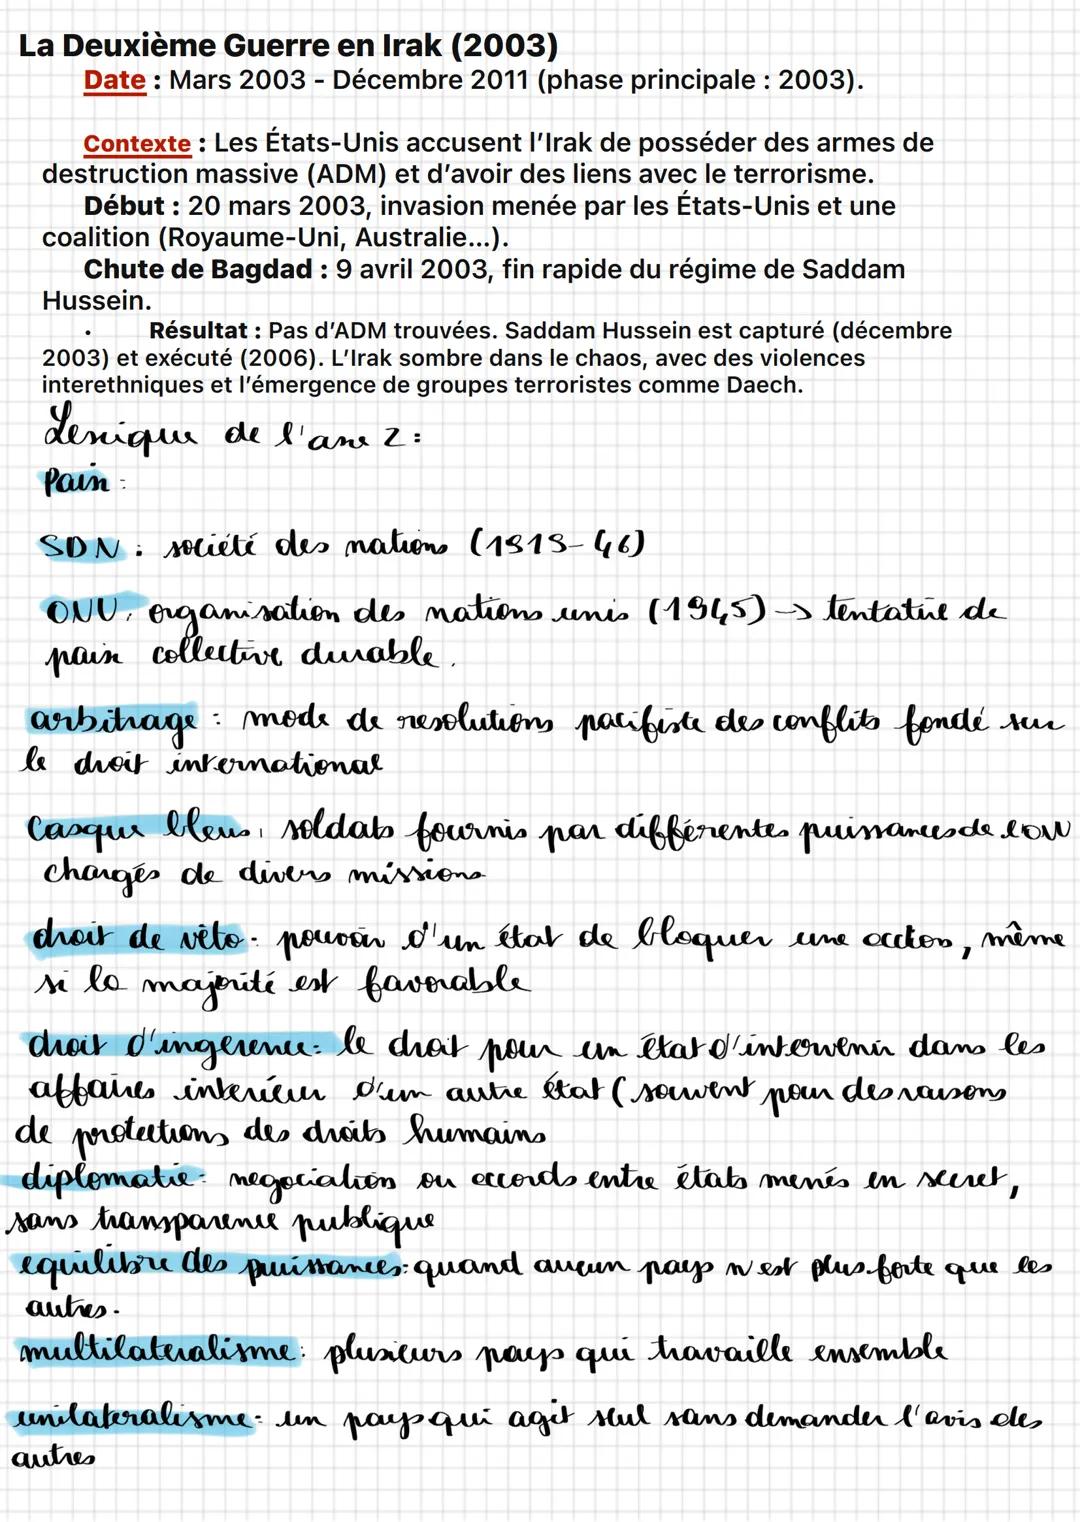 La Deuxième Guerre en Irak (2003)
Date : Mars 2003 - Décembre 2011 (phase principale : 2003).
Contexte : Les États-Unis accusent l'Irak de posséder des armes de
destruction massive (ADM) et d'avoir des liens avec le terrorisme.
Début : 20 mars 2003, invasion menée par les États-Unis et une
coalition (Royaume-Uni, Australie...).
Chute de Bagdad : 9 avril 2003, fin rapide du régime de Saddam
Hussein.
• Résultat : Pas d'ADM trouvées. Saddam Hussein est capturé (décembre
2003) et exécuté (2006). L'Irak sombre dans le chaos, avec des violences
interethniques et l'émergence de groupes terroristes comme Daech.
Lexique de l'axe 2 :
Paix :
SDN : société des nations (1919-46)
ONU : organisation des nations unis (1945) → tentative de
paix collective durable.
arbitrage : mode de resolutions pacifiste des conflits fondé sur
le droit international
Casque bleus : soldats fournis par différentes puissances de l'ONU
chargés de divers missions
droit de véto : pouvoir d'un état de bloquer une action, même
si la majorité est favorable
droit d'ingerence : le droit pour un état d'intervenir dans les
affaires interieur d'un autre état (souvent pour des raisons
de protections des droits humains
diplomatie : negociation ou accords entre états menés en secret,
sans transparence publique
equilibre des puissances : quand aucun pays n'est plus forte que les
autres.
multilateralisme : plusieurs pays qui travaille ensemble
unilateralisme : un pays qui agit seul sans demander l'avis des
autres